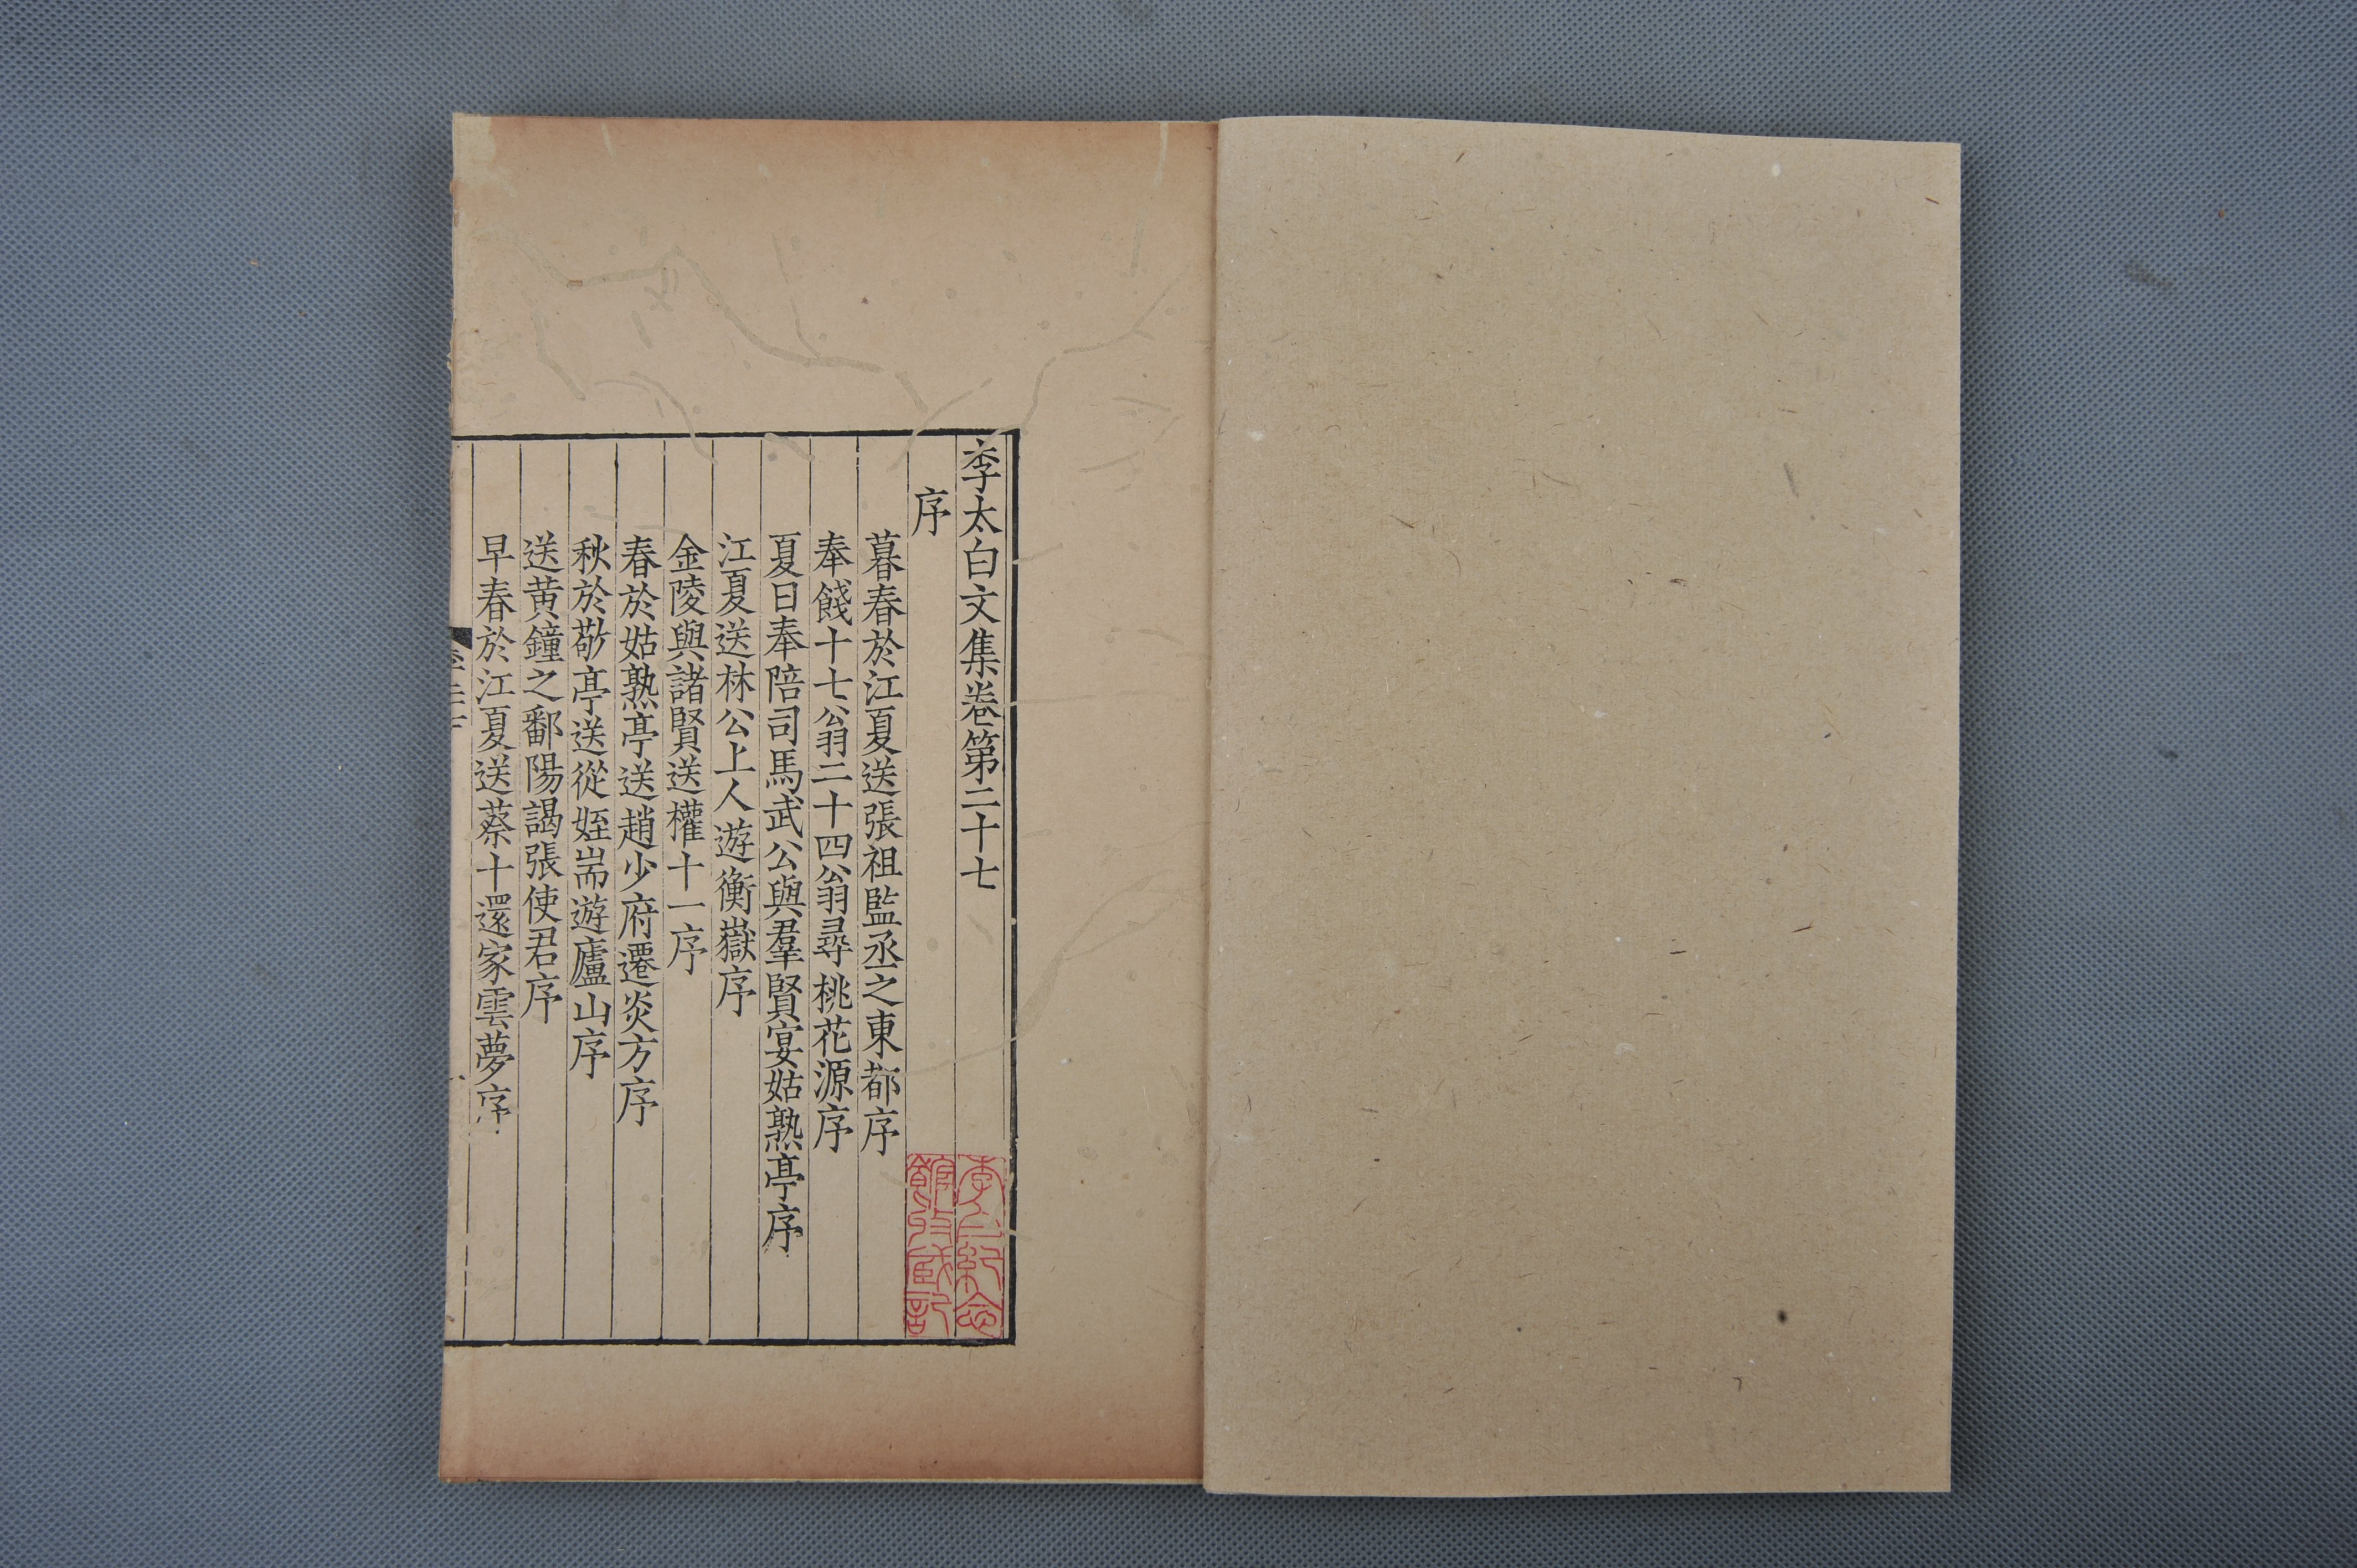 李太白文集卷第二十七
序
暮春於江夏送張祖監丞之東都序
奉餞十七翁二十四翁尋桃花源序
夏日奉陪司馬武公與羣賢宴姑熟亭序
江夏送林公上人遊衡嶽序
金陵與諸賢送權十一序
春於姑熟亭送趙少府遷炎方序
秋於敬亭送從姪耑遊廬山序
送黄鐘之鄱陽謁張使君序
早春於江夏送蔡十還家雲夢序
李白紀念
館收藏記